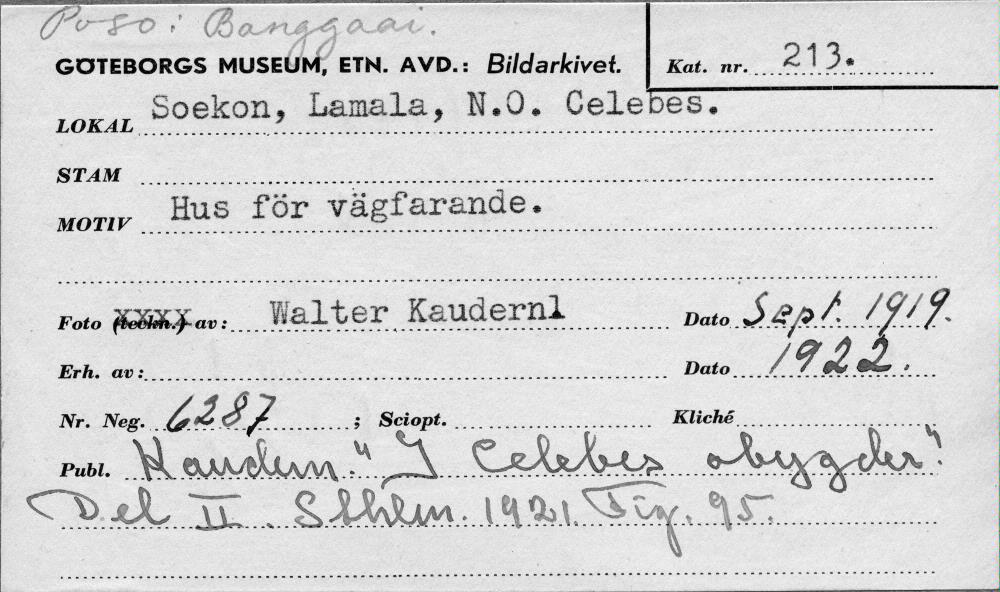 Poso: Banggaai.
GÖTEBORGS MUSEUM, ETN. AVD.: Bildarkivet. Kat. nr. 213.
LOKAL Soekon, Lamala, N.O. Celebes.
STAM
MOTIV Hus för vägfarande.
Foto (teckn.) av: Walter Kaudernl Dato Sept. 1919.
Erh. av: Dato 1922.
Nr. Neg. 6287 ; Sciopt. Kliché
Publ. Kaudern: "I Celebes obygder".
Del II. Sthlm. 1921. Fig. 95.